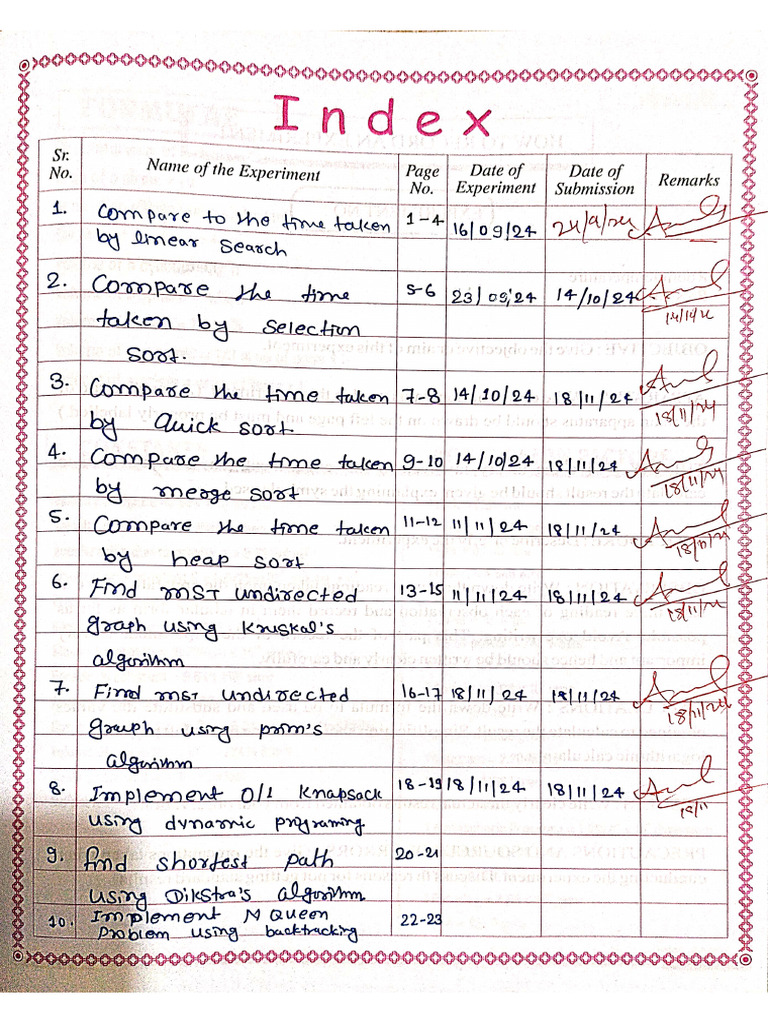 Index
Sr. No. Name of the Experiment Page No. Date of Experiment Date of Submission Remarks
1. Compare to the time taken 1-4 16/09/24 24/9/24
by linear search
2. Compare the time 5-6 23/09/24 14/10/24
taken by selection 14/10/24
sort.
3. Compare the time taken 7-8 14/10/24 18/11/24
by Quick sort. 18/11/24
4. Compare the time taken 9-10 14/10/24 18/11/24
by merge sort 18/11/24
5. Compare the time taken 11-12 11/11/24 18/11/24
by heap sort 18/11/24
6. Find MST undirected 13-15 11/11/24 18/11/24
graph using Kruskal's 18/11/24
algorithm
7. Find MST undirected 16-17 18/11/24 18/11/24
graph using prim's 18/11/24
algorithm
8. Implement 0/1 Knapsack 18-19 18/11/24 18/11/24
using dynamic programing 18/11
9. find shortest path 20-21
using Dikstra's algorithm
10. Implement N Queen 22-23
Problem using backtracking